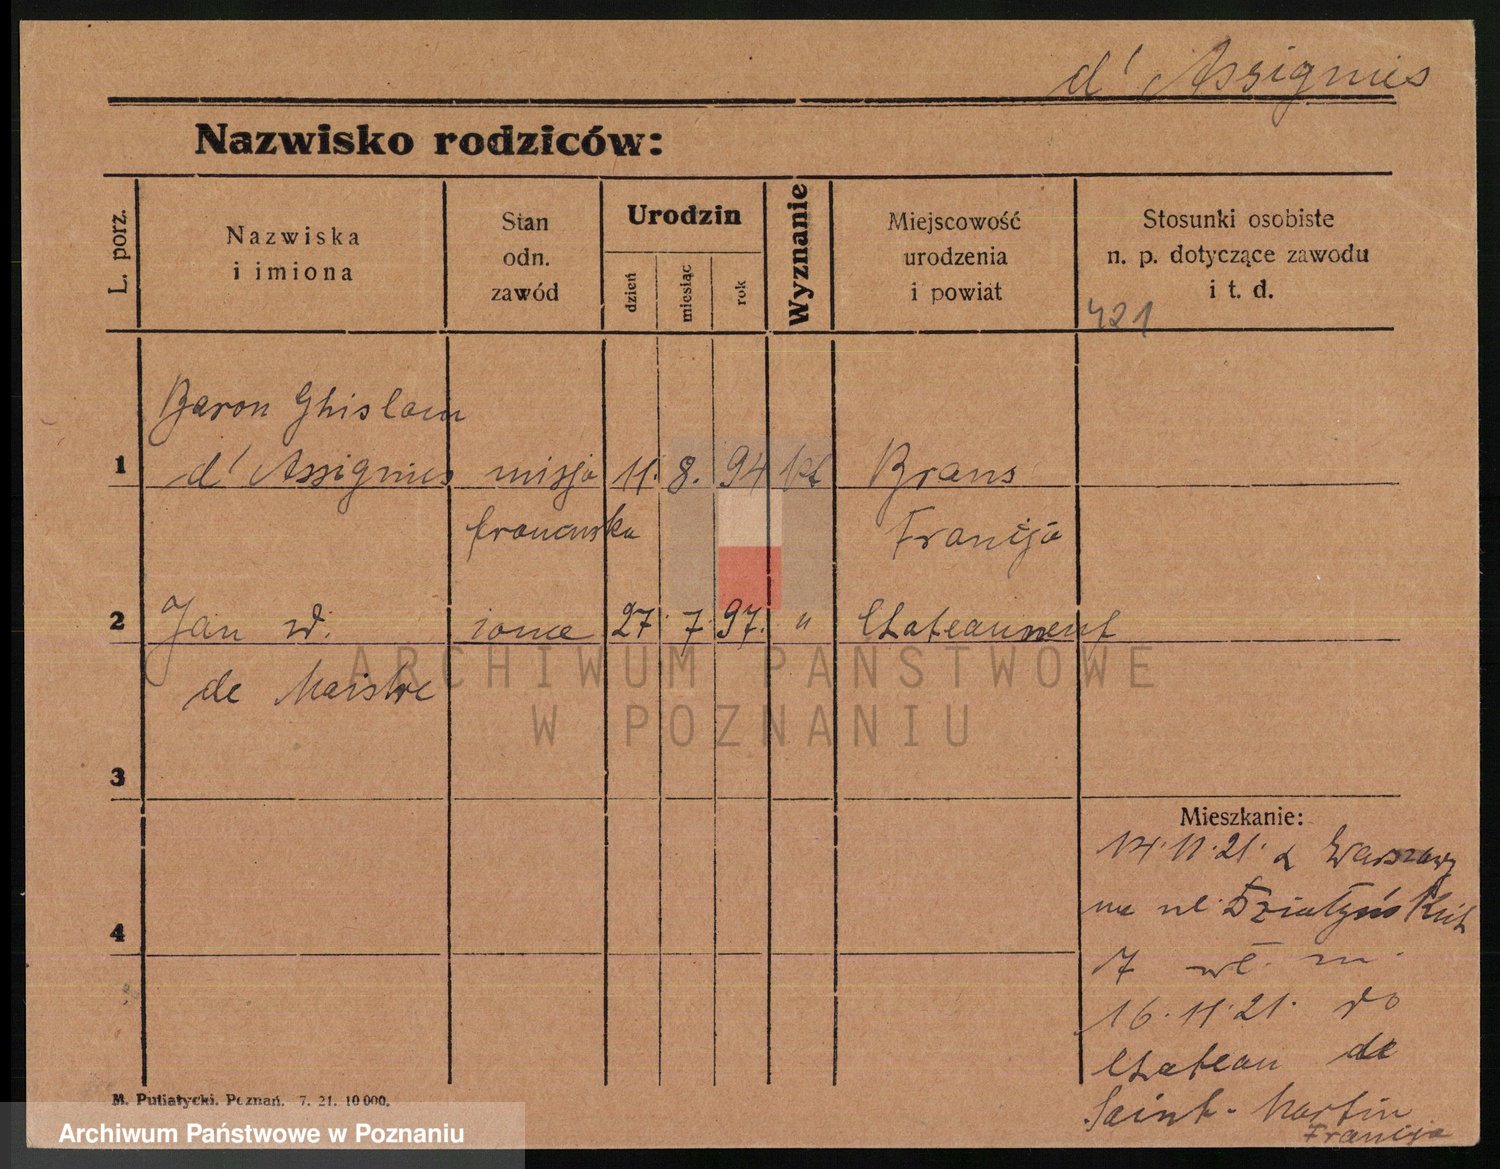 d' Assignies
Nazwisko rodziców:
L. porz.
Nazwiska
i imiona
Stan
odn.
zawód
Urodzin
dzień
miesiąc
rok
Wyznanie
Miejscowość
urodzenia
i powiat
Stosunki osobiste
n. p. dotyczące zawodu
i t. d.
421
Baron Ghislain
1 d' Assignies misja 11. 8. 94 kt Brans
francuska Francja
2 Jan żona 27. 7. 97. " Chateauneuf
de Maistre
3
4
Mieszkanie:
14.11.21. z Warszawy
na ul. Działyńskich
7 wł. m.
16.11.21. do
Chateau de
Saint-Martin
Francja
M. Putiatycki. Poznań. 7. 21. 10000.
ARCHIWUM PAŃSTWOWE
W POZNANIU
Archiwum Państwowe w Poznaniu